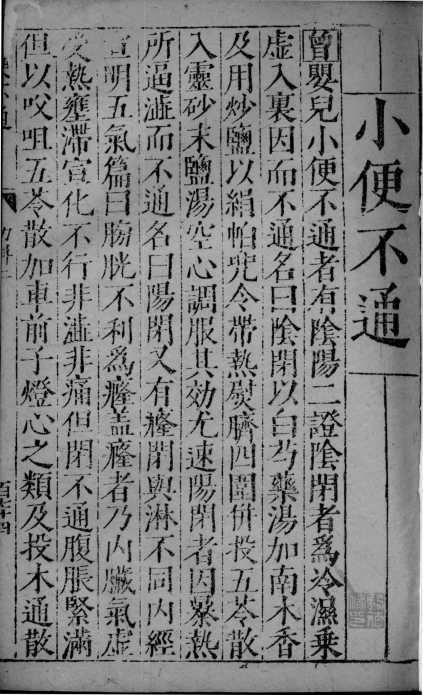 小便不通
曾嬰兒小便不通者有陰陽二證陰閉者爲冷濕乗
虛入裏因而不通名曰陰閉以白芍藥湯加南木香
及用炒鹽以絹帕兠令帶熱熨臍四圍併投五苓散
入靈砂末鹽湯空心調服其効尤速陽閉者因暴熱
所逼澁而不通名曰陽閉又有癃閉與淋不同內經
宣明五氣篇曰膀胱不利爲癃盖癃者乃內臟氣虛
受熱壅滯宣化不行非澁非痛但閉不通腹脹緊滿
但以㕮咀五苓散加車前子燈心之類及投木通散